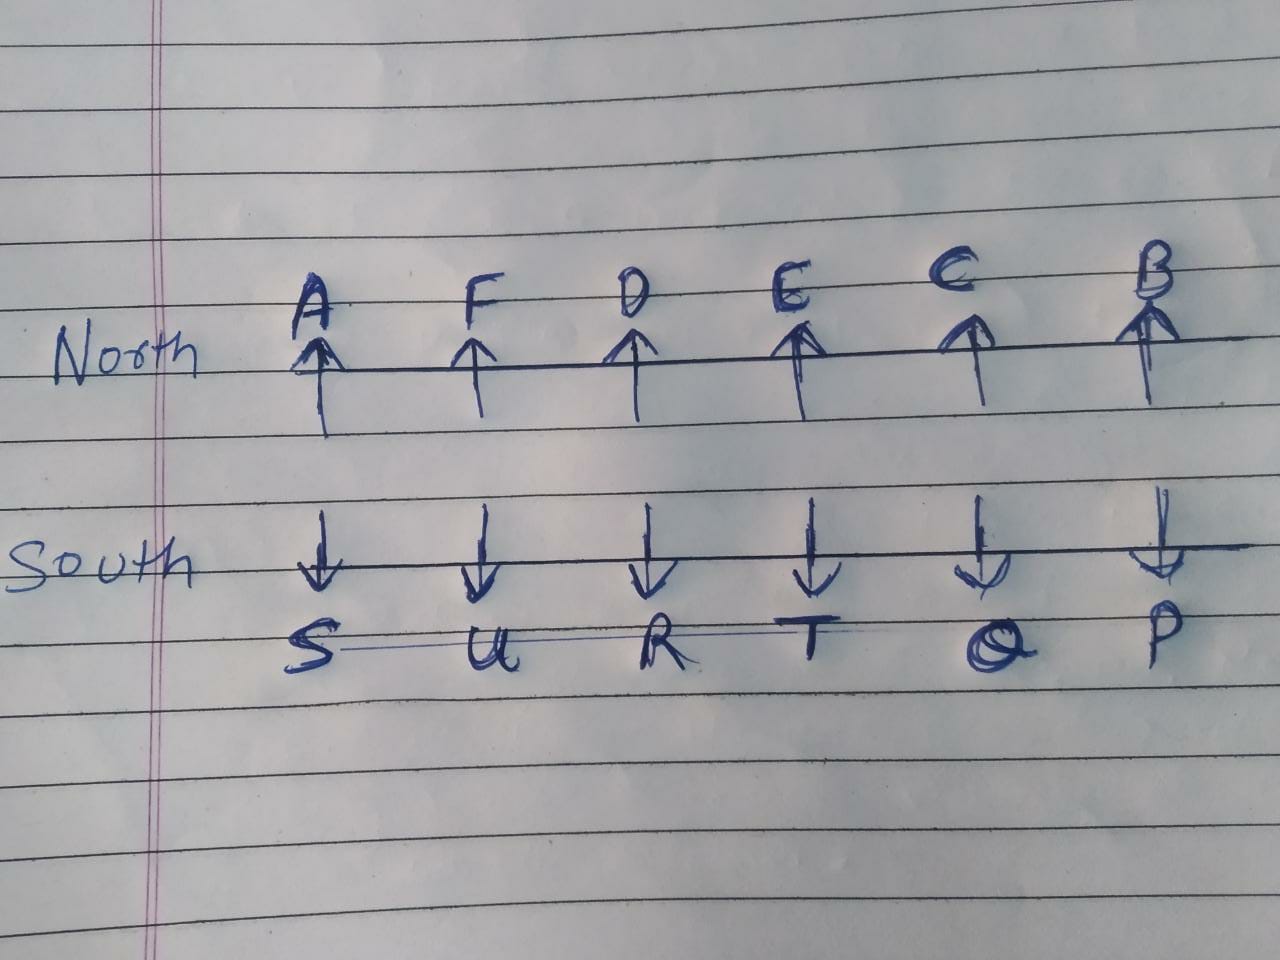 A F D E C B
North
South
S U R T Q P